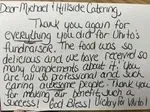 Dear Michael & Hillside Catering,
Thank you again for
everything you did for Unito's
fundraiser. The food was so
delicious and we have received so
many complements about it! You
are all so professional and such
caring awesome people. Thank you
for making our benefit such a
success! God Bless! Thank you for Unito